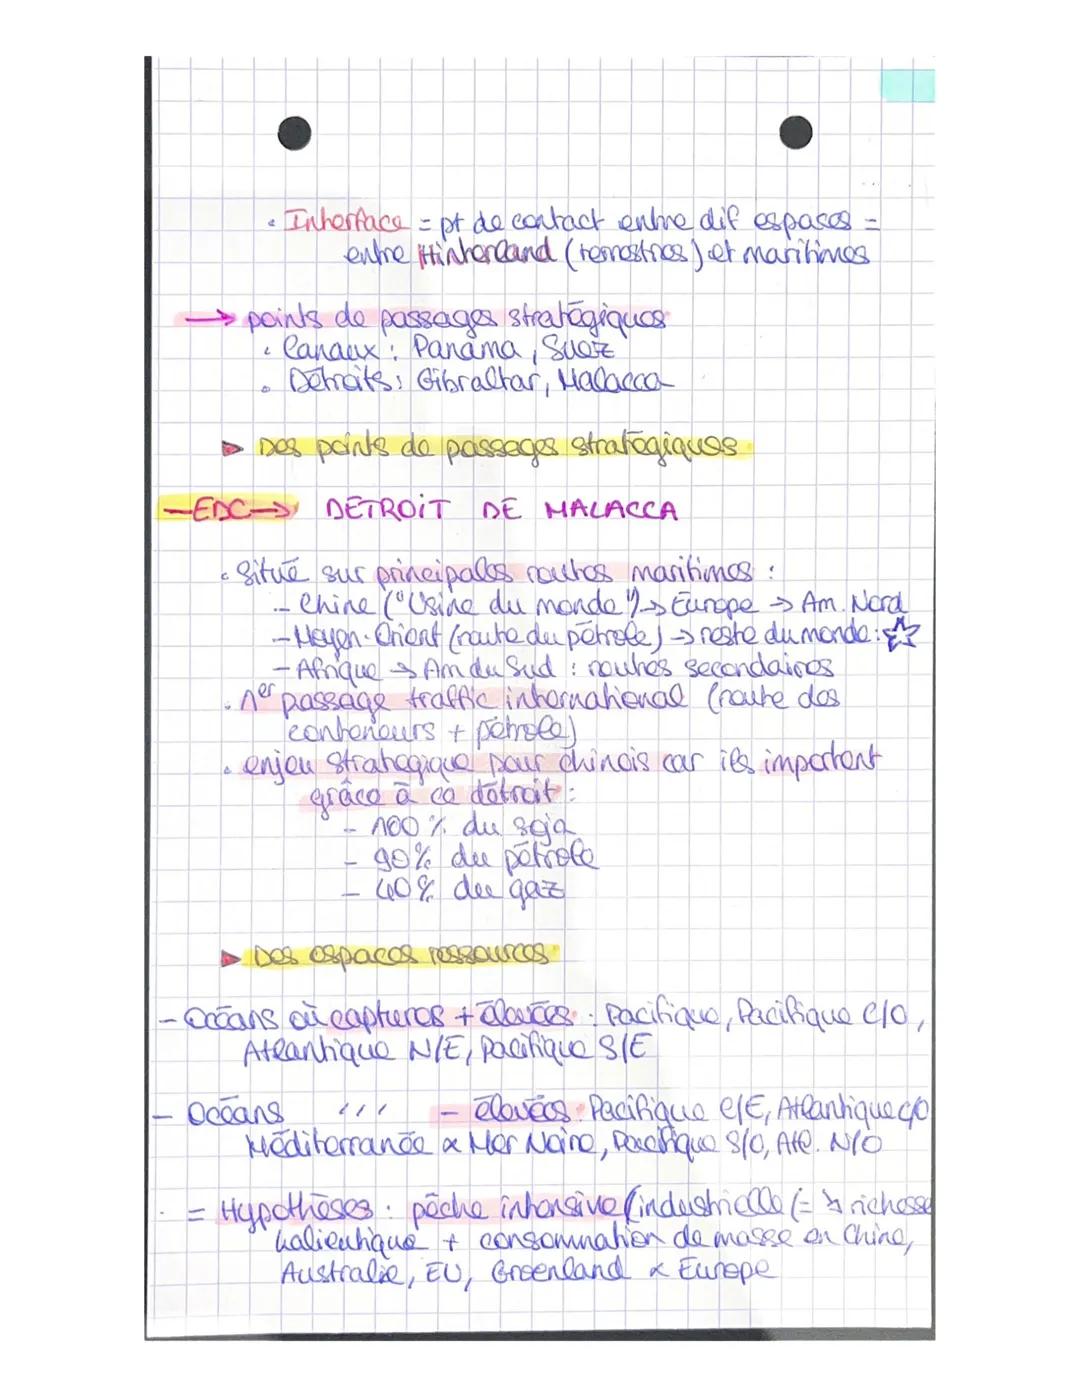 • Interface = pt de contact entre dif espaces =
entre Hinterland (terrestres) et maritimes
→ points de passages stratégiques
• Canaux : Panama, Suez
• Détroits : Gibraltar, Malacca
► Des points de passages stratégiques
—EDC→ DÉTROIT DE MALACCA
• Situé sur principales routes maritimes :
- Chine ("Usine du monde") → Europe → Am. Nord
- Moyen-Orient (route du pétrole) → reste du monde : ☆
- Afrique → Am du Sud : routes secondaires
• 1er passage traffic international (route des
conteneurs + pétrole)
• enjeu strategique pour chinois car ils importent
grâce à ce détroit :
- 100 % du soja
- 90% du pétrole
- 40% du gaz
► Des espaces ressources
- Océans où captures + élevées : Pacifique, Pacifique C/O,
Atlantique N/E, Pacifique S/E
- Océans ‹ ‹ ‹ - élevées : Pacifique C/E, Atlantique C/O
Méditerranée & Mer Noire, Pacifique S/O, Atl. N/O
= Hypothèses : pêche intensive (industrielle (= ↘ richesse
halieutique + consommation de masse en Chine,
Australie, EU, Groenland & Europe